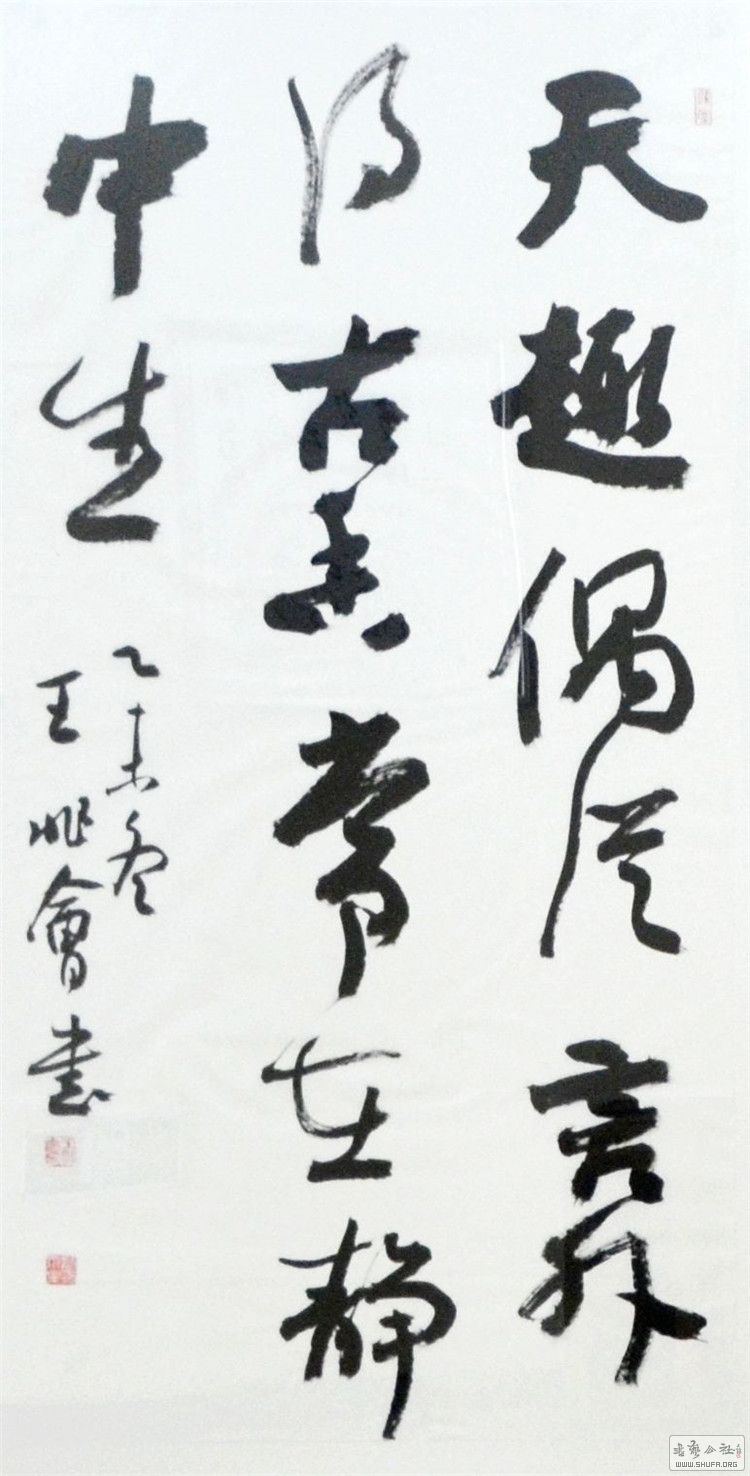 天趣偶從言外
得古香常在静
中生
乙未冬
王會書
书艺公社
WWW.SHUFA.ORG